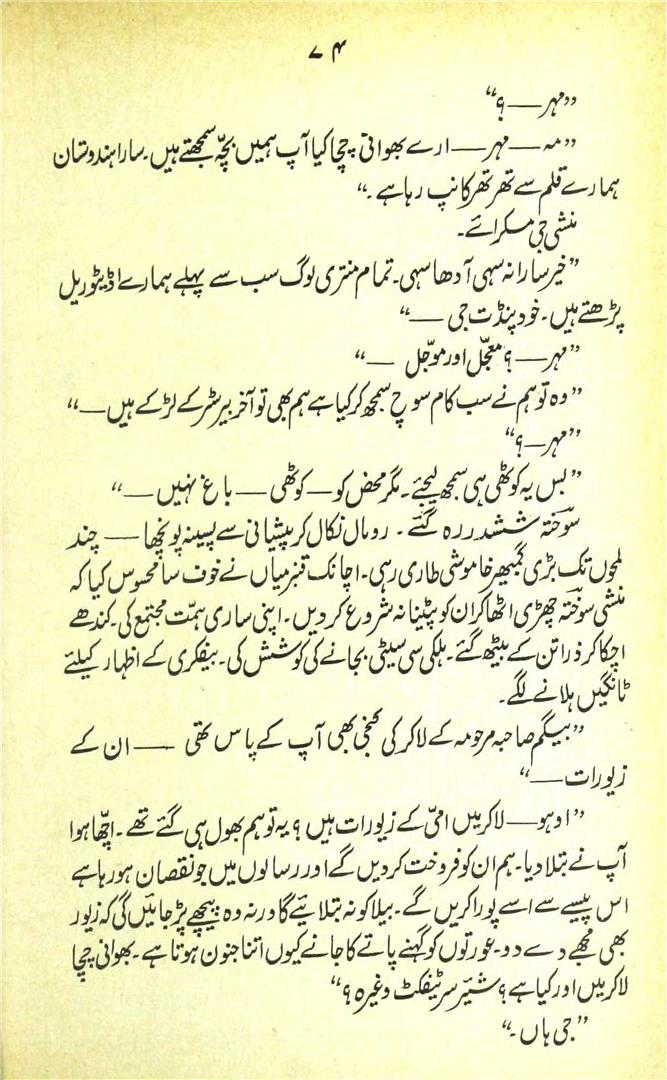 ۷۴
”مہر — ؟“
”مہ — مہر — ارے بھوانی چچا کیا آپ ہمیں بچّہ سمجھتے ہیں۔ سارا ہندوستان
ہمارے قلم سے تھر تھر کانپ رہا ہے۔“
منشی جی مسکرائے۔
”خیر سارا نہ سہی آدھا سہی۔ تمام منتری لوگ سب سے پہلے ہمارے اڈیٹوریل
پڑھتے ہیں۔ خود پنڈت جی —“
”مہر — ؟ معجّل اور موجّل —“
”وہ تو ہم نے سب کام سوچ سمجھ کر کیا ہے ہم بھی تو آخر بیرسٹر کے لڑکے ہیں —“
”مہر — ؟“
”بس یہ کوٹھی ہی سمجھ لیجئے۔ مگر محض کو — کوٹھی — باغ نہیں —“
سوختہ ششدر رہ گئے۔ رومال نکال کر پیشانی سے پسینہ پونچھا — چند
لمحوں تک بڑی گمبھیر خاموشی طاری رہی۔ اچانک قنبر میاں نے خوف سا محسوس کیا کہ
منشی سوختہ چھڑی اٹھا کر ان کو پیٹنا نہ شروع کر دیں۔ اپنی ساری ہمّت مجتمع کی۔ کندھے
اچکا کر ذرا تن کے بیٹھ گئے۔ ہلکی سی سیٹی بجانے کی کوشش کی۔ بیفکری کے اظہار کیلئے
ٹانگیں ہلانے لگے۔
”بیگم صاحبہ مرحومہ کے لاکر کی کنجی بھی آپ کے پاس تھی — ان کے
زیورات —“
”اوہو — لاکر میں امّی کے زیورات ہیں ؟ یہ تو ہم بھول ہی گئے تھے۔ اچّھا ہوا
آپ نے بتلا دیا۔ ہم ان کو فروخت کر دیں گے اور رسالوں میں جو نقصان ہو رہا ہے
اس پیسے سے اسے پورا کریں گے۔ بیلا کو نہ بتلائیے گا ورنہ وہ پیچھے پڑ جائیں گی کہ زیور
بھی مجھے دے دو۔ عورتوں کو گہنے پاتے کا جانے کیوں اتنا جنون ہوتا ہے۔ بھوانی چچا
لاکر میں اور کیا ہے ؟ شیئر سرٹیفکٹ وغیرہ ؟“
”جی ہاں۔“